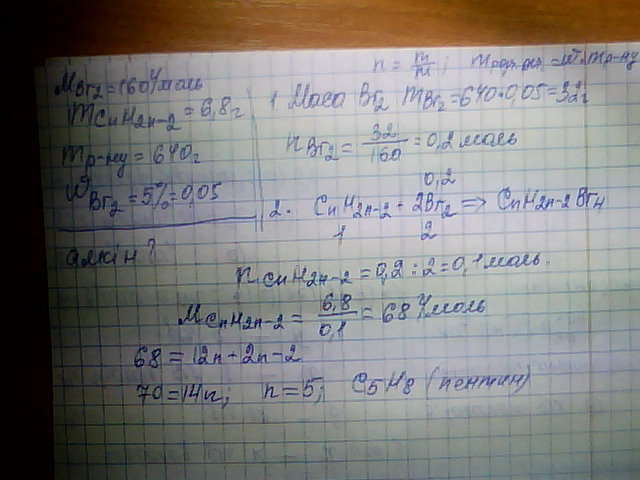 n = m/M; m
M Br2 = 160 г/моль
m CnH2n-2 = 6,8г
m р-ну = 640г
W Br2 = 5% = 0,05
алкін?
1 Маса Br2 m Br2 = 640·0,05 = 32г
n Br2 = 32/160 = 0,2 моль
0,2
2. CnH2n-2 + 2Br2 => CnH2n-2Br4
1 2
n CnH2n-2 = 0,2 : 2 = 0,1 моль.
M CnH2n-2 = 6,8/0,1 = 68 г/моль
68 = 12n + 2n - 2
70 = 14n; n = 5; C5H8 (пентин)